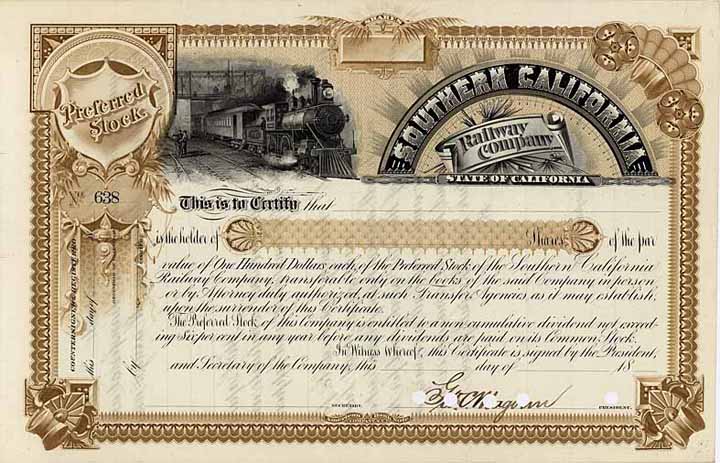 SHARES
Preferred
Stock.
SOUTHERN CALIFORNIA
Railway
Company
STATE OF CALIFORNIA
No. 638
This is to Certify that
is the holder of Shares of the par
value of One Hundred Dollars each, of the Preferred Stock of the Southern California
Railway Company, transferable only on the books of the said Company in person
or by Attorney duly authorized, at such Transfer Agencies as it may establish,
upon the surrender of this Certificate.
The Preferred Stock of this Company is entitled to a non cumulative dividend not exceed-
ing Six per cent in any year before any dividends are paid on its Common Stock.
In Witness Whereof, this Certificate is signed by the President,
and Secretary of the Company, this day of 18
COUNTERSIGNED & REGISTERED
this day of
by
SECRETARY.
PRESIDENT.